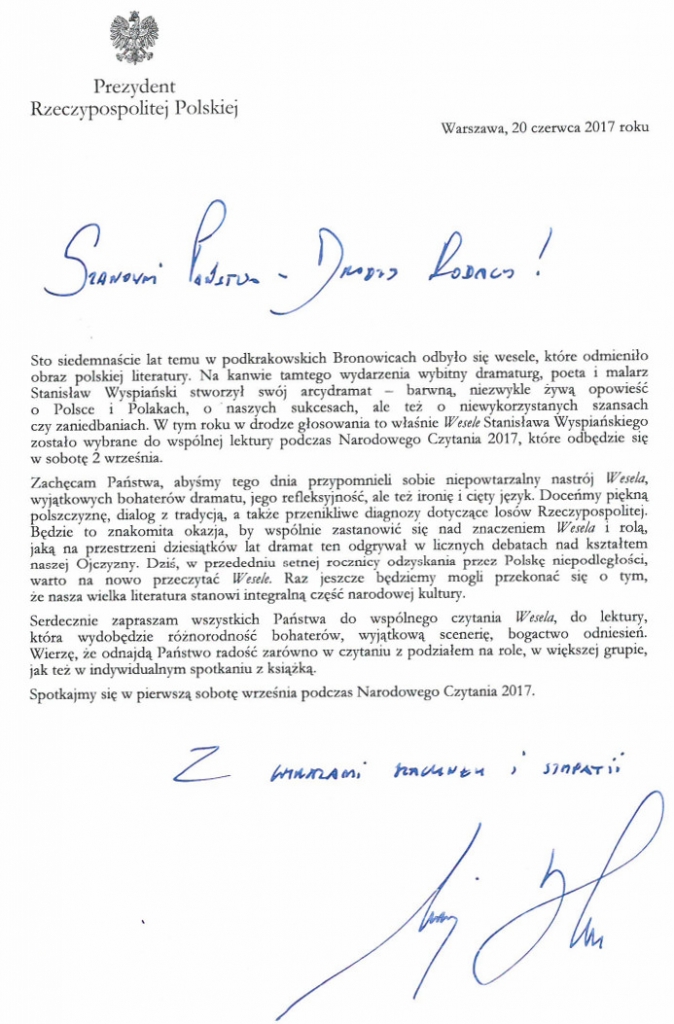 Prezydent
Rzeczypospolitej Polskiej
Warszawa, 20 czerwca 2017 roku
Szanowni Państwo - Drodzy Rodacy!
Sto siedemnaście lat temu w podkrakowskich Bronowicach odbyło się wesele, które odmieniło
obraz polskiej literatury. Na kanwie tamtego wydarzenia wybitny dramaturg, poeta i malarz
Stanisław Wyspiański stworzył swój arcydramat – barwną, niezwykle żywą opowieść
o Polsce i Polakach, o naszych sukcesach, ale też o niewykorzystanych szansach
czy zaniedbaniach. W tym roku w drodze głosowania to właśnie Wesele Stanisława Wyspiańskiego
zostało wybrane do wspólnej lektury podczas Narodowego Czytania 2017, które odbędzie się
w sobotę 2 września.
Zachęcam Państwa, abyśmy tego dnia przypomnieli sobie niepowtarzalny nastrój Wesela,
wyjątkowych bohaterów dramatu, jego refleksyjność, ale też ironię i cięty język. Doceńmy piękną
polszczyznę, dialog z tradycją, a także przenikliwe diagnozy dotyczące losów Rzeczypospolitej.
Będzie to znakomita okazja, by wspólnie zastanowić się nad znaczeniem Wesela i rolą,
jaką na przestrzeni dziesiątków lat dramat ten odgrywał w licznych debatach nad kształtem
naszej Ojczyzny. Dziś, w przededniu setnej rocznicy odzyskania przez Polskę niepodległości,
warto na nowo przeczytać Wesele. Raz jeszcze będziemy mogli przekonać się o tym,
że nasza wielka literatura stanowi integralną część narodowej kultury.
Serdecznie zapraszam wszystkich Państwa do wspólnego czytania Wesela, do lektury,
która wydobędzie różnorodność bohaterów, wyjątkową scenerię, bogactwo odniesień.
Wierzę, że odnajdą Państwo radość zarówno w czytaniu z podziałem na role, w większej grupie,
jak też w indywidualnym spotkaniu z książką.
Spotkajmy się w pierwszą sobotę września podczas Narodowego Czytania 2017.
Z wyrazami szacunku i sympatii